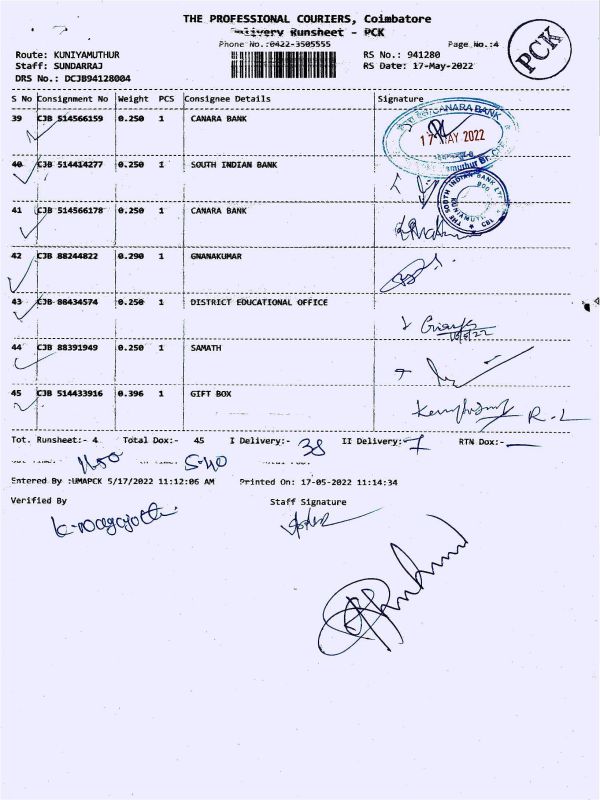 THE PROFESSIONAL COURIERS, Coimbatore
Delivery Runsheet - PCK
Phone No.:0422-3505555 Page No.:4
PCK
Route: KUNIYAMUTHUR RS No.: 941280
Staff: SUNDARRAJ RS Date: 17-May-2022
DRS No.: DCJB94128004
S No Consignment No Weight PCS Consignee Details Signature
39 CJB 514566159 0.250 1 CANARA BANK
CANARA BANK
17 MAY 2022
40 CJB 514414277 0.250 1 SOUTH INDIAN BANK
THE SOUTH INDIAN BANK LTD
KUNIYAMUTHUR
CBE
41 CJB 514566178 0.250 1 CANARA BANK
42 CJB 88244822 0.290 1 GNANAKUMAR
43 CJB 88434574 0.250 1 DISTRICT EDUCATIONAL OFFICE
44 CJB 88391949 0.250 1 SAMATH
45 CJB 514433916 0.396 1 GIFT BOX
R.L
Tot. Runsheet:- 4 Total Dox:- 45 I Delivery:- 38 II Delivery:- 7 RTN Dox:-
5-40
Entered By :UMAPCK 5/17/2022 11:12:06 AM Printed On: 17-05-2022 11:14:34
Verified By Staff Signature